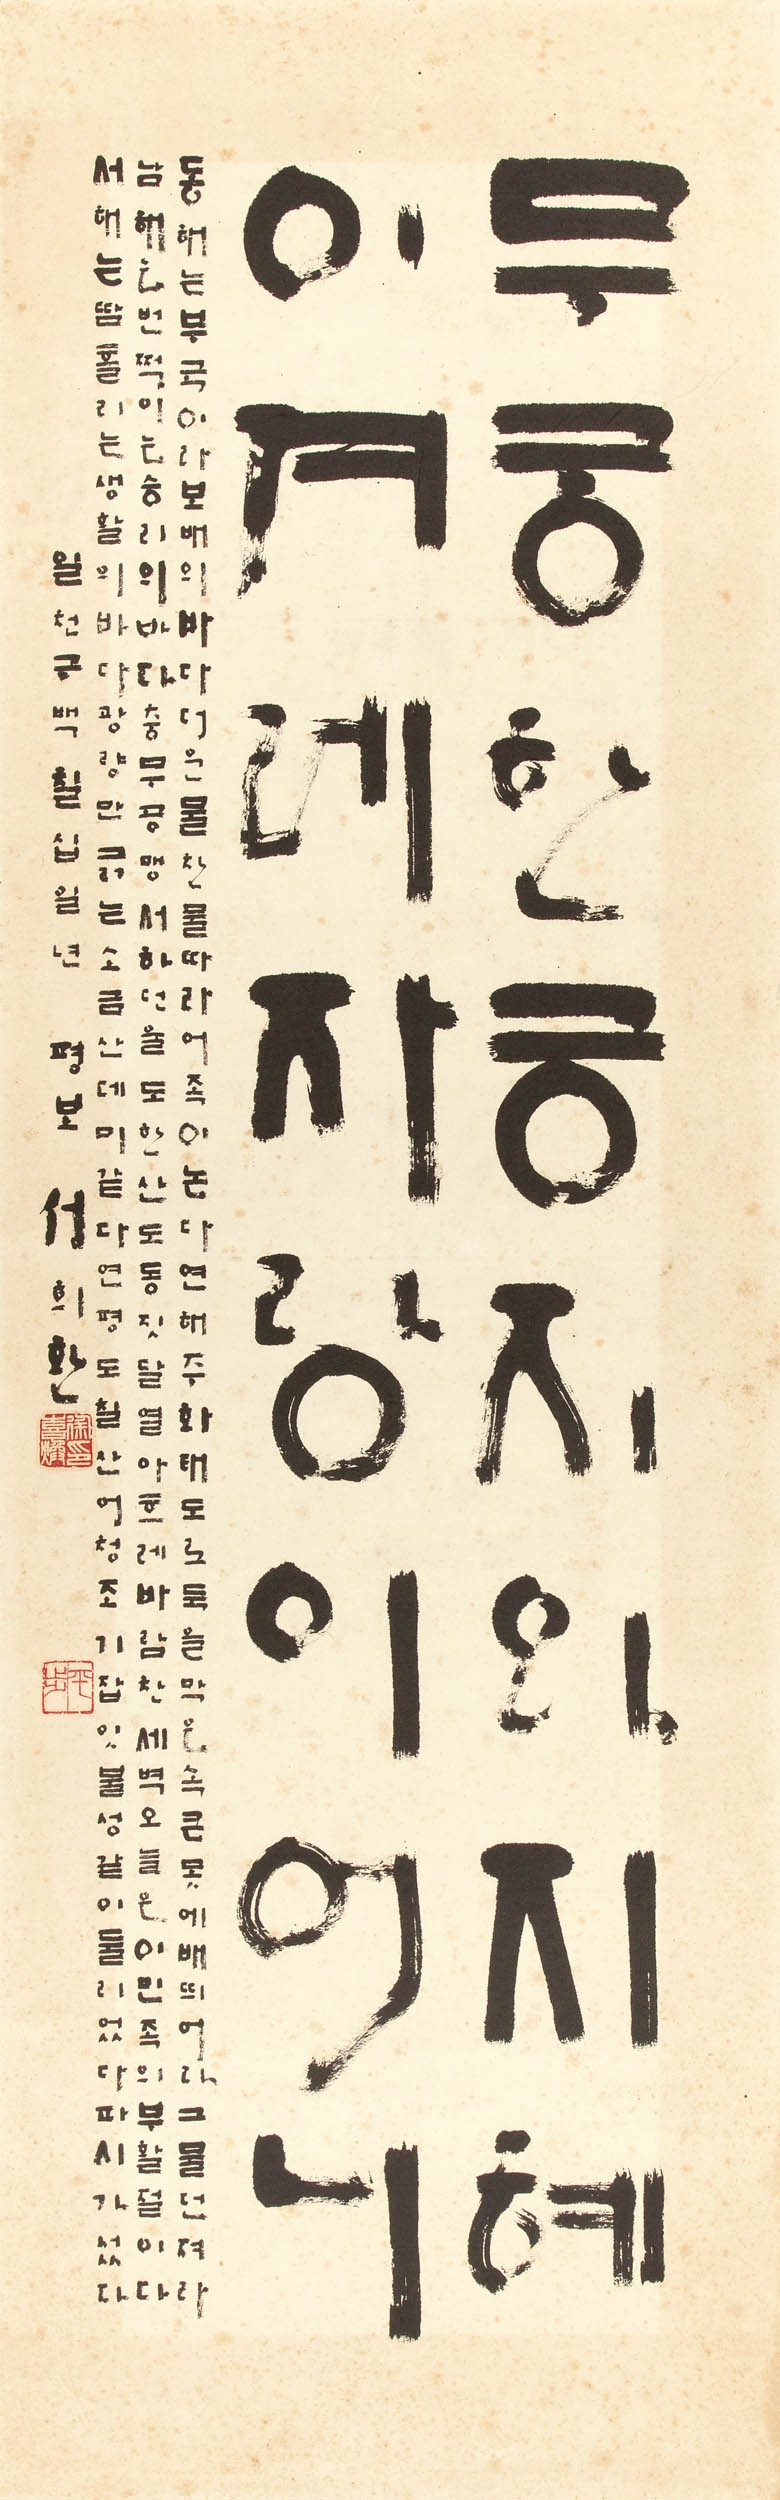 무궁한긍지와지혜
이겨레자랑이어니
동해는부국이라보배의바다더운물찬물따라어족이논다연해주화태도로둑을막은속큰못에배띄어라그물던져라
남해는번쩍이는승리의바다충무공맹서하던울도한산도동짓달열아흐레바람찬세벽오늘은이민족의부활절이다
서해는땀흘리는생활의바다광량만긁는소금산데미같다연평도칠산어청조기잡잇불성같이둘리었다파시가섰다
일천구백칠십일년 평보 서희환
徐印喜煥
平步